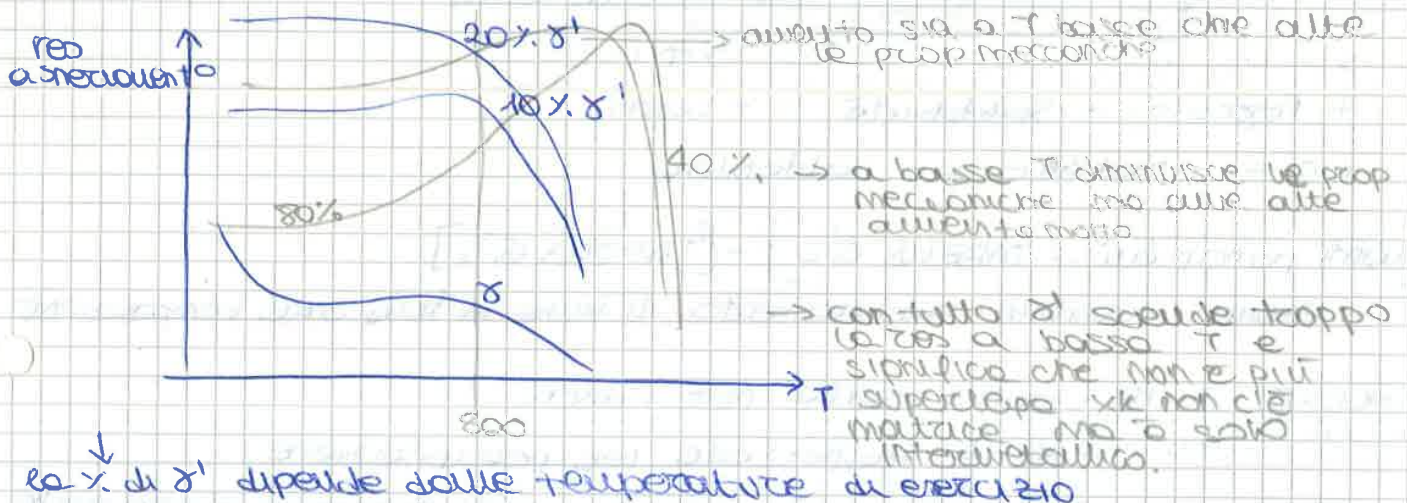 res
a snervamento
20% γ'
→ aumento sia a T basse che alte
le prop meccaniche
10% γ'
40% → a basse T diminuisce le prop
meccaniche ma alle alte
aumenta molto
80%
γ
→ con tutto γ' scende troppo
la res a bassa T e
significa che non è più
superlega xk non c'è
matrice ma è solo
intermetallico.
T
800
↓
la % di γ' dipende dalle temperature di esercizio